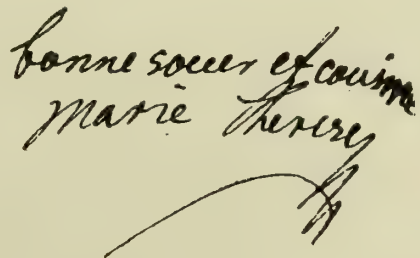 bonne soeur et cousine
marie Therese